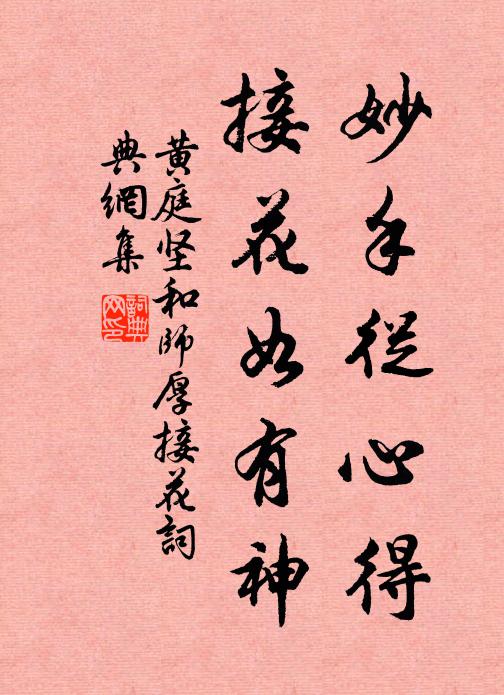 妙手從心得
接花如有神
黄庭坚和師厚接花詞
典網集
詞典网印